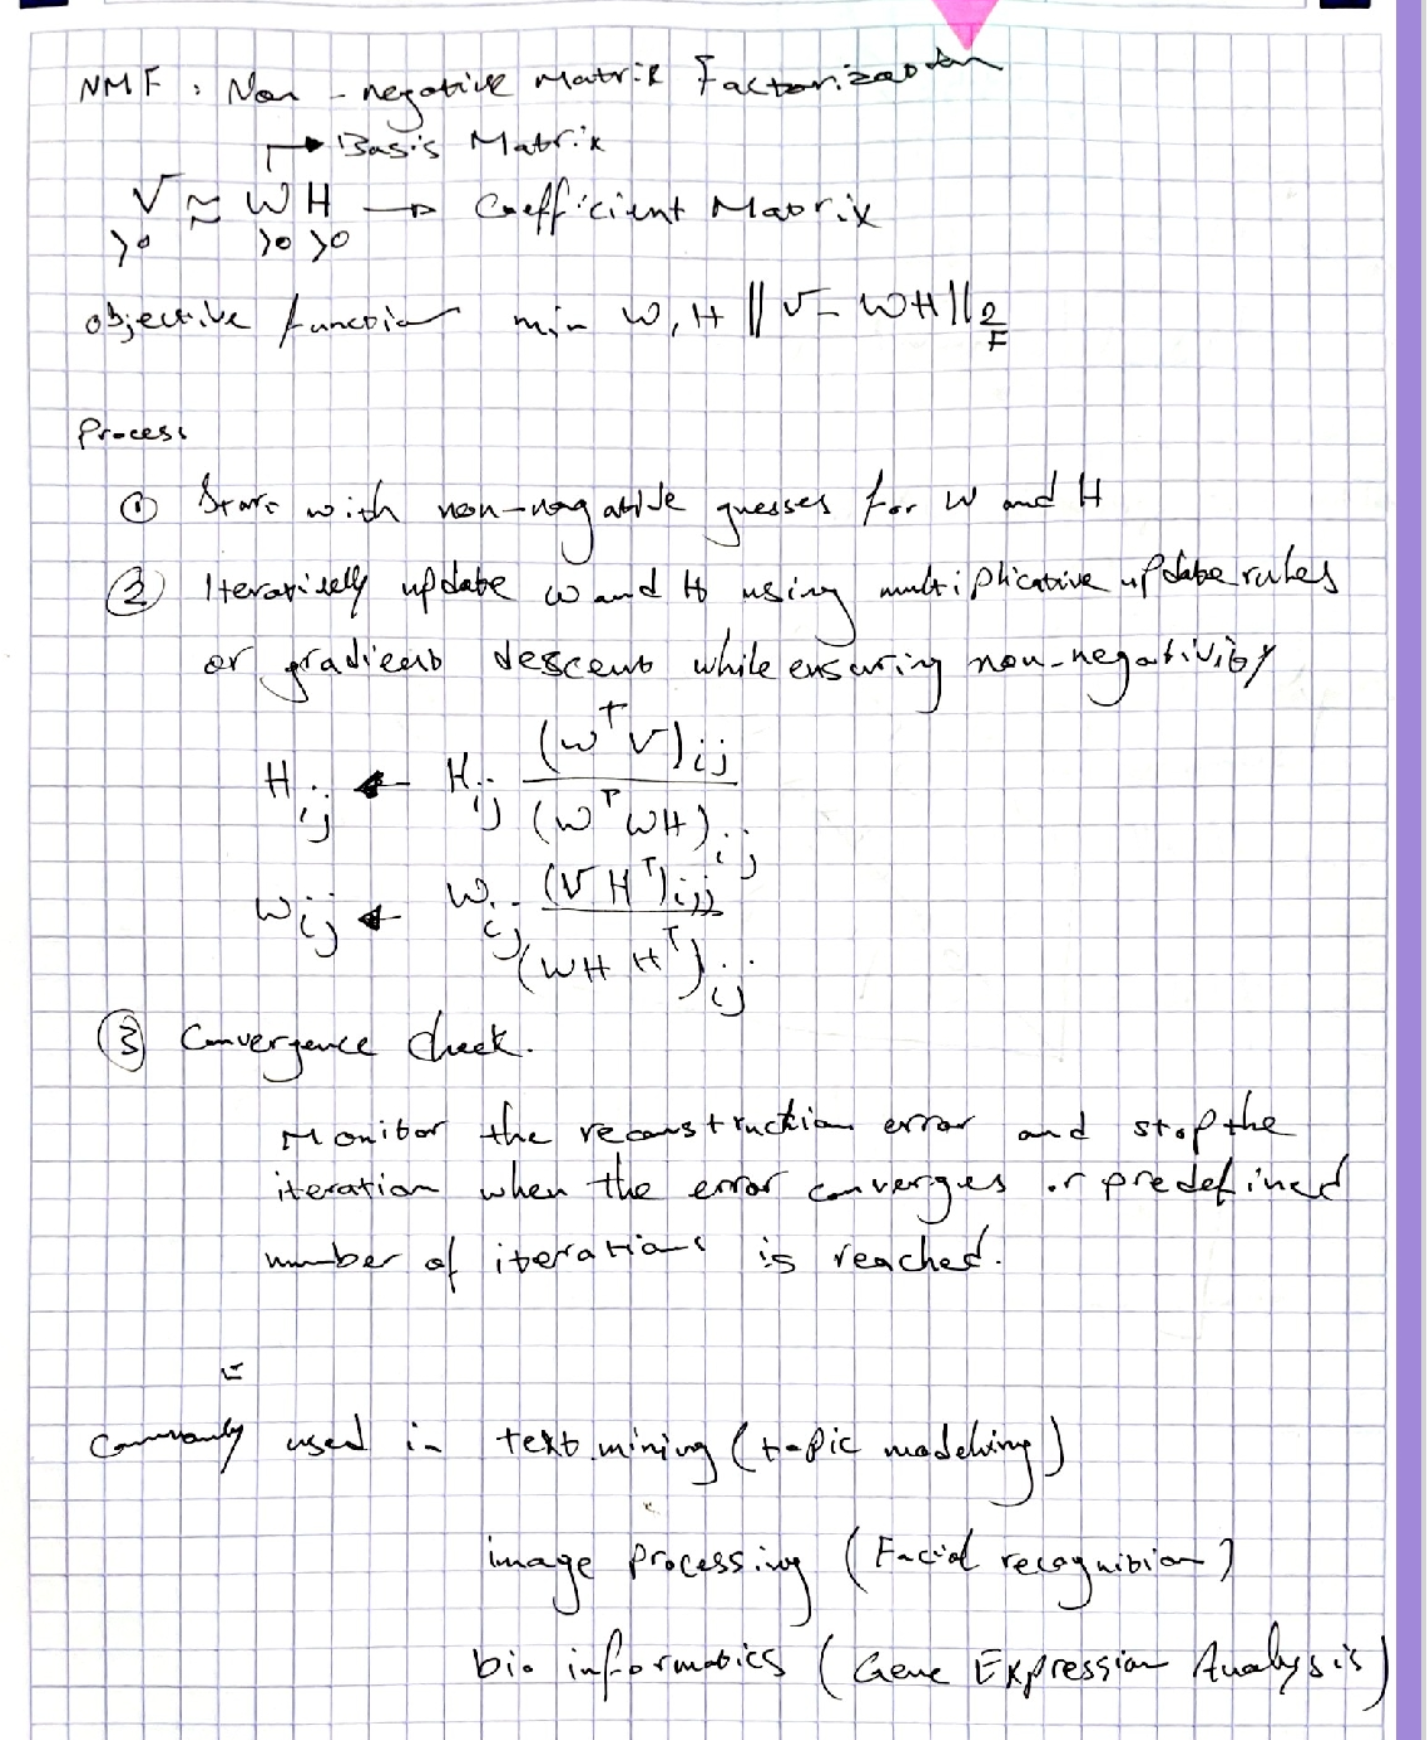 NMF : Non-negative Matrix Factorization
→ Basis Matrix
V ≈ WH → Coefficient Matrix
>0 >0 >0
objective function min W,H ||V - WH||2F
Process
① Start with non-negative guesses for W and H
② Iteratively update W and H using multiplicative update rules
or gradient descent while ensuring non-negativity
(W^T V)ij
Hij ← Hij
(W^T WH)ij
Wij ← Wij (V H^T)ij
(WH H^T)ij
③ Convergence check.
Monitor the reconstruction error and stop the
iteration when the error converges or predefined
number of iterations is reached.
Commonly used in text mining (topic modelving)
image processing (Facial recognition)
bio informatics (Gene Expression Analysis)